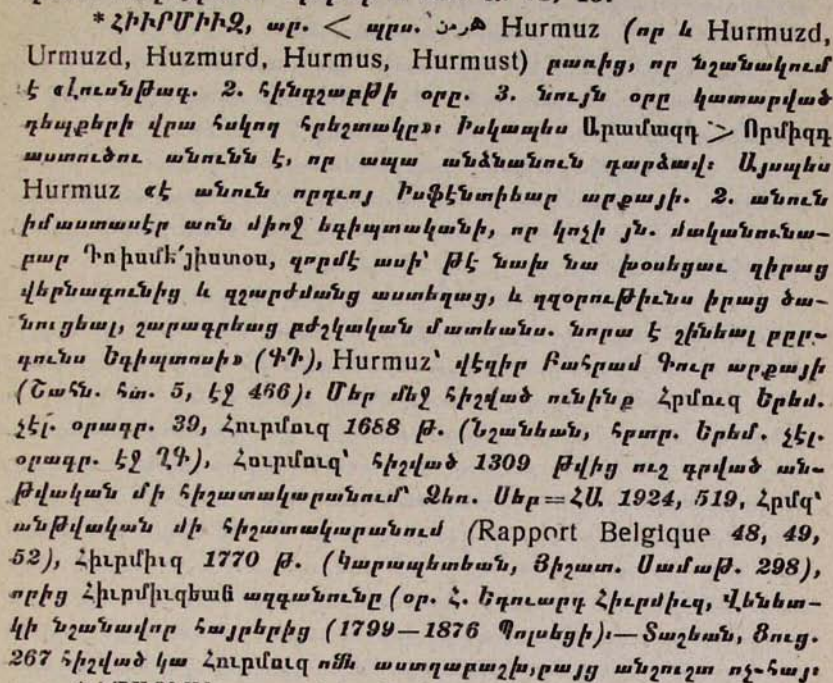 *ՀԻՒՐՄԻՒԶ, ար. < պրս. هرمز Hurmuz (որ և Hurmuzd,
Urmuzd, Huzmurd, Hurmus, Hurmust) բառից, որ նշանակում
է «լուսնթագ. 2. հինգշաբթի օրը. 3. նույն օրը կատարված
դեպքերի վրա հսկող հրեշտակը»։ Իսկապես Արամազդ > Որմիզդ
աստուծու անունն է, որ ապա անձնանուն դարձավ։ Այսպես
Hurmuz «է անուն որդւոյ Իսֆէնտիեար արքայի. 2. անուն
իմաստասէր առն միոջ եգիպտականի, որ կոչի յն. մականունա-
բար Դոիսմէ՛յիստոս, զորմէ ասի՝ թէ նախ նա խօսեցաւ զիրաց
վերնագունից և զշարժմանց աստեղաց, և զզօրութիւնս իրաց ծա-
նուցեալ, շարագրեաց բժշկական մատեանս. նորա է շինեալ բըր-
գունս Եգիպտոսի» (ԳԴ), Hurmuz՝ վէզիր Բահրամ Գուր արքայի
(Շահն. հտ. 5, էջ 466)։ Մեր մեջ հիշված ունինք Հրմուզ Երեմ.
չէլ. օրագր. 39, Հուրմուզ 1688 թ. (Նշանեան, հրտր. Երեմ. չէլ.
օրագր. էջ ՂԳ), Հուրմուզ՝ հիշված 1309 թվից ուշ գրված ան-
թվական մի հիշատակարանում՝ Ձեռ. Սեբ=ՀԱ. 1924, 519, Հրմզ՝
անթվական մի հիշատակարանում (Rapport Belgique 48, 49,
52), Հիւրմիւզ 1770 թ. (Կարապետեան, Յիշատ. Սամաթ. 298),
որից Հիւրմիւզեան ազգանունը (օր. Հ. Եդուարդ Հիւրմիւզ, Վենետ-
կի նշանավոր հայրերից (1799—1876 Պոլսեցի)։—Տաշեան, Ցուց.
267 հիշված կա Հուրմուզ ոմն աստղաբաշխ, բայց անշուշտ ոչ-հայ։